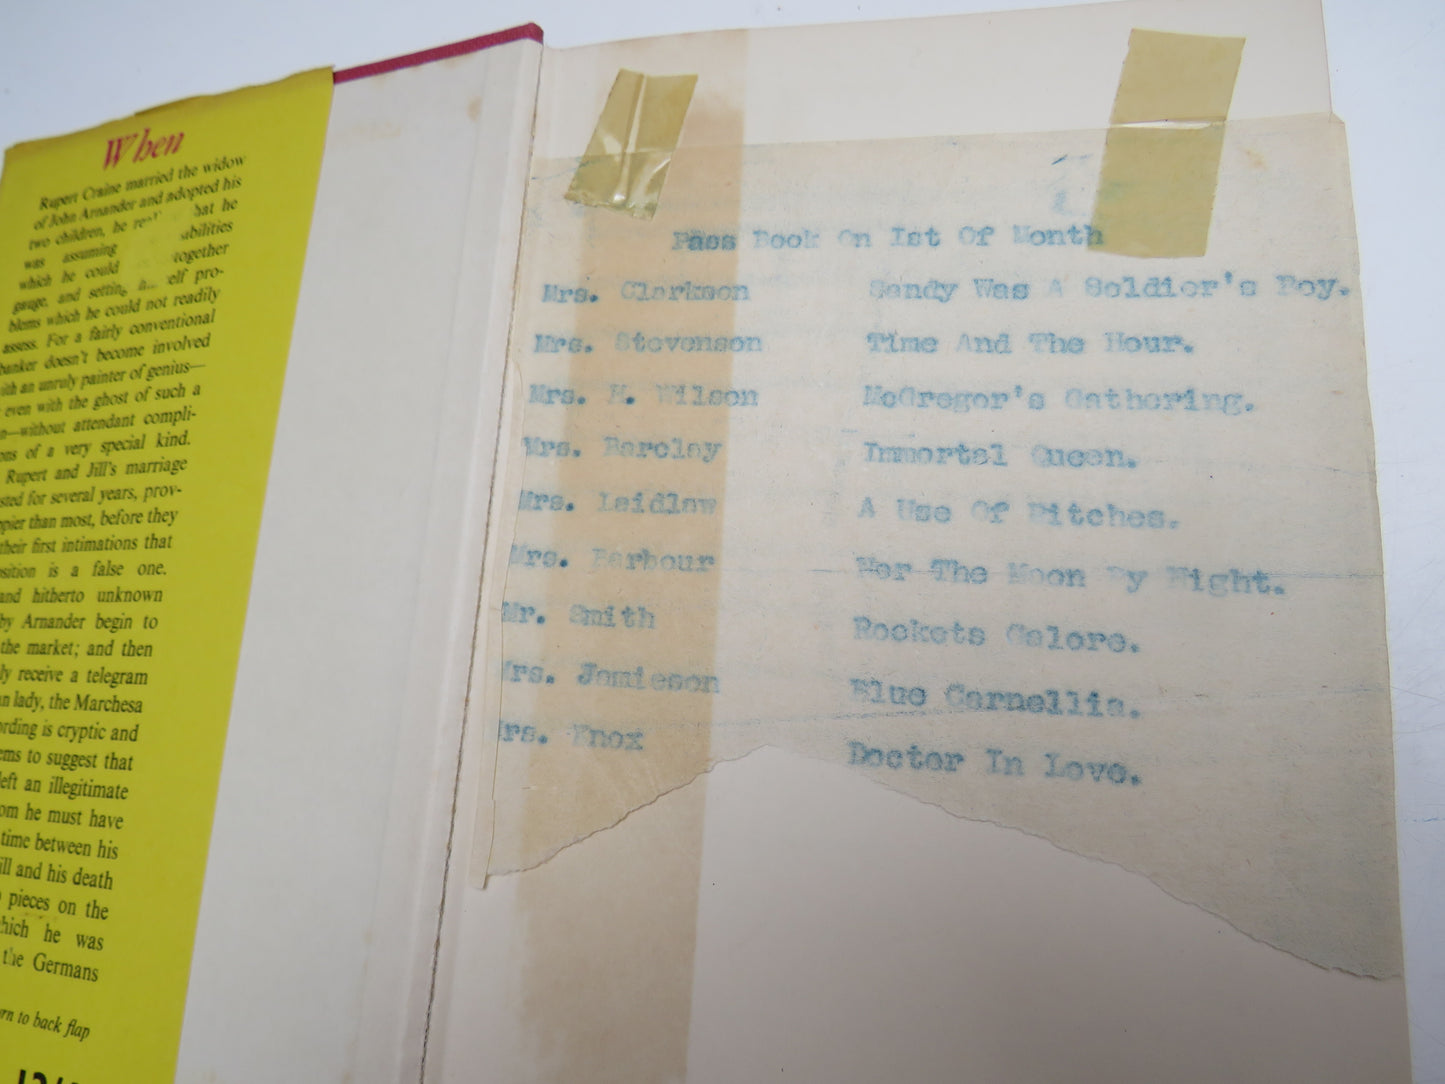 When
Rupert Craine married the widow
of John Arnander and adopted his
two children, he hat he
was assuming abilities
which he could together
gauge, and setting elf pro-
blems which he could not readily
assess. For a fairly conventional
banker doesn't become involved
ith an unruly painter of genius—
even with the ghost of such a
n—without attendant compli-
ons of a very special kind.
Rupert and Jill's marriage
sted for several years, prov-
ppier than most, before they
their first intimations that
sition is a false one.
and hitherto unknown
by Arnander begin to
the market; and then
ly receive a telegram
an lady, the Marchesa
ording is cryptic and
ems to suggest that
left an illegitimate
om he must have
time between his
ill and his death
pieces on the
hich he was
the Germans
rn to back flap
Pass Book On Ist Of Month
Mrs. Clarkson Sandy Was A Soldier's Boy.
Mrs. Stevenson Time And The Hour.
Mrs. H. Wilson McGregor's Gathering.
Mrs. Barclay Immortal Queen.
Mrs. Laidlaw A Use Of Ritches.
Mrs. Barbour Nor The Moon By Night.
Mr. Smith Rockets Galore.
Mrs. Jamieson Blue Camellia.
Mrs. Knox Doctor In Love.